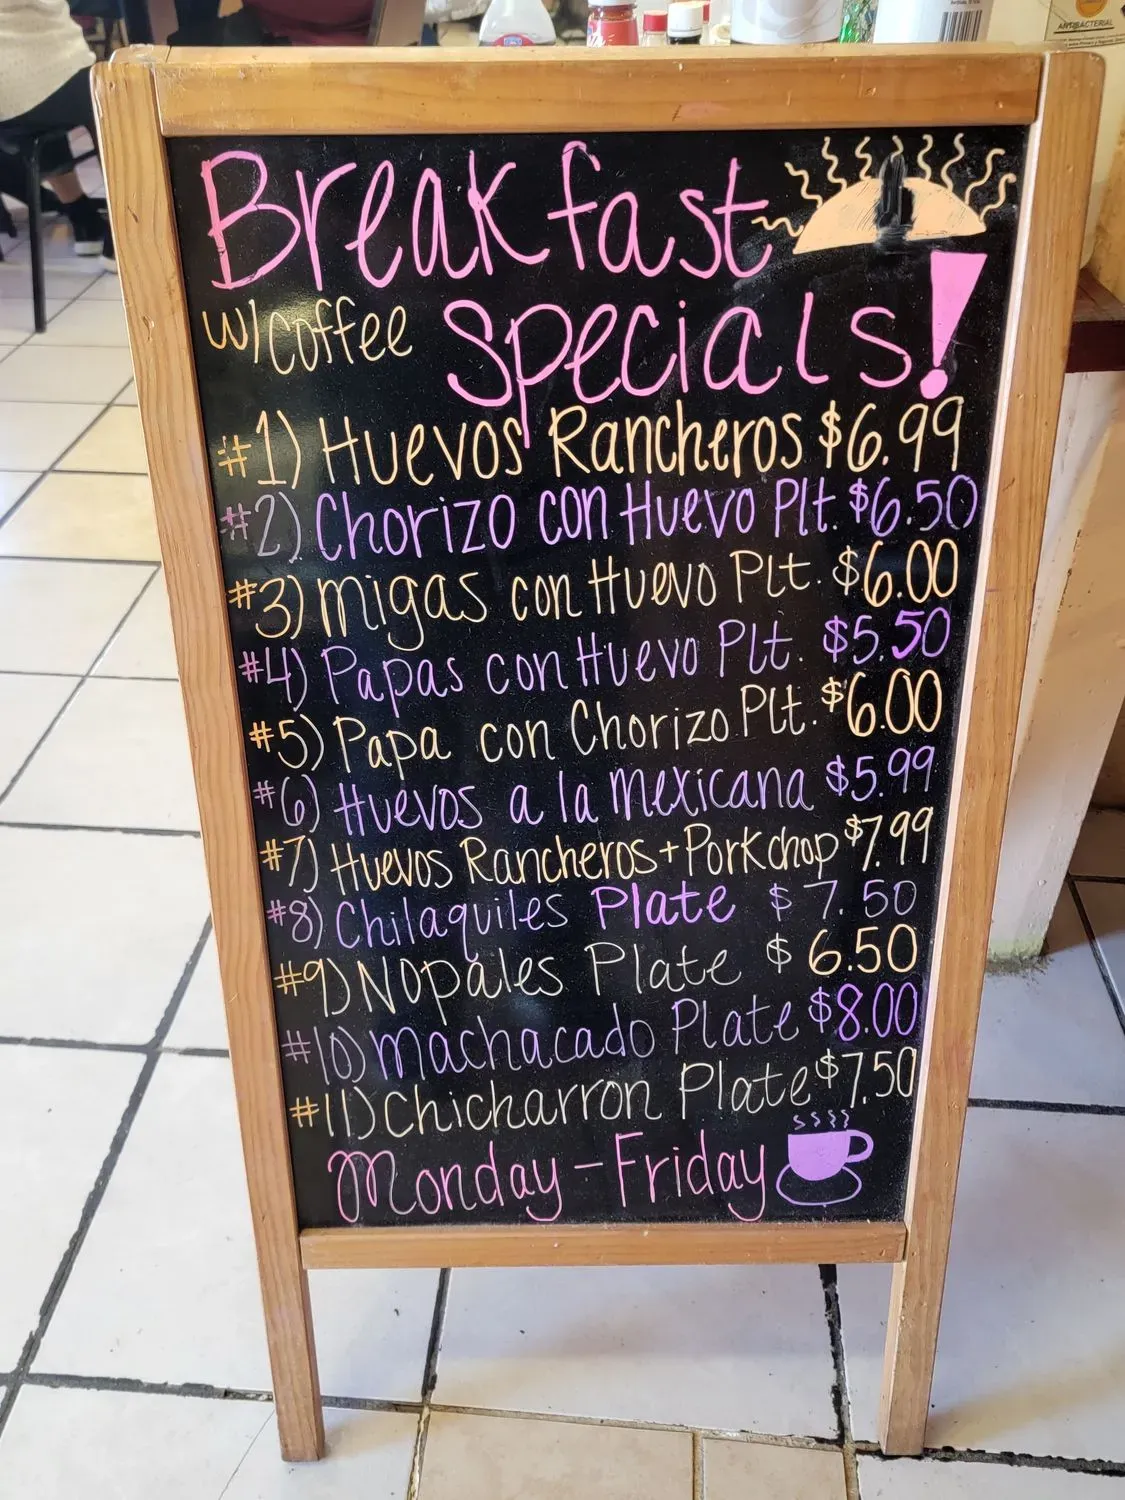 ANTIBACTERIAL
Breakfast
w/coffee Specials!
#1) Huevos Rancheros $6.99
#2) Chorizo con Huevo Plt. $6.50
#3) Migas con Huevo Plt. $6.00
#4) Papas con Huevo Plt. $5.50
#5) Papa con Chorizo Plt. $6.00
#6) Huevos a la Mexicana $5.99
#7) Huevos Rancheros + Porkchop $7.99
#8) Chilaquiles Plate $7.50
#9) Nopales Plate $6.50
#10) Machacado Plate $8.00
#11) Chicharron Plate $7.50
Monday - Friday